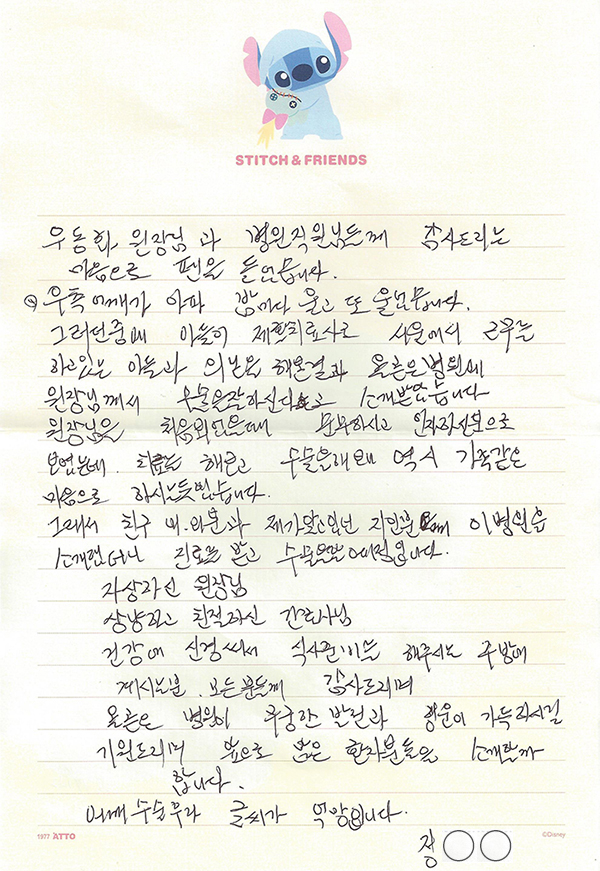 STITCH & FRIENDS
우동화 원장님 과 병원직원님들께 감사드리는
마음으로 펜을 들었습니다.
우측어깨가 아파 밤마다 울고 또 울었습니다.
그러던중에 아들이 재활치료사로 서울에서 근무를
하고있는 아들과 의논을 해본결과 올흔은병원에
원장님께서 수술을잘하신다고 소개받았습니다
원장님을 처음뵈었을때 온유하시고 인자하신분으로
보였는데. 치료를 해보고 수술을해보니 역시 가족같은
마음으로 하시는듯했습니다.
그래서 친구 내.외분과 제가알고있던 지인분께 이병원을
소개했더니 진료를 받고 수술을받 예정입니다.
자상하신 원장님
상냥하고 친절하신 간호사님
건강에 신경써서 식사준비를 해주시는 주방에
계시는분. 모든 분들께 감사드리며
올흔은 병원이 무궁한 발전과 행운이 가득하시길
기원드리며 앞으로 많은 환자분들을 소개할까
합니다.
어깨수술후라 글씨가 엉망입니다.
1977 ATTO ©Disney
정○○